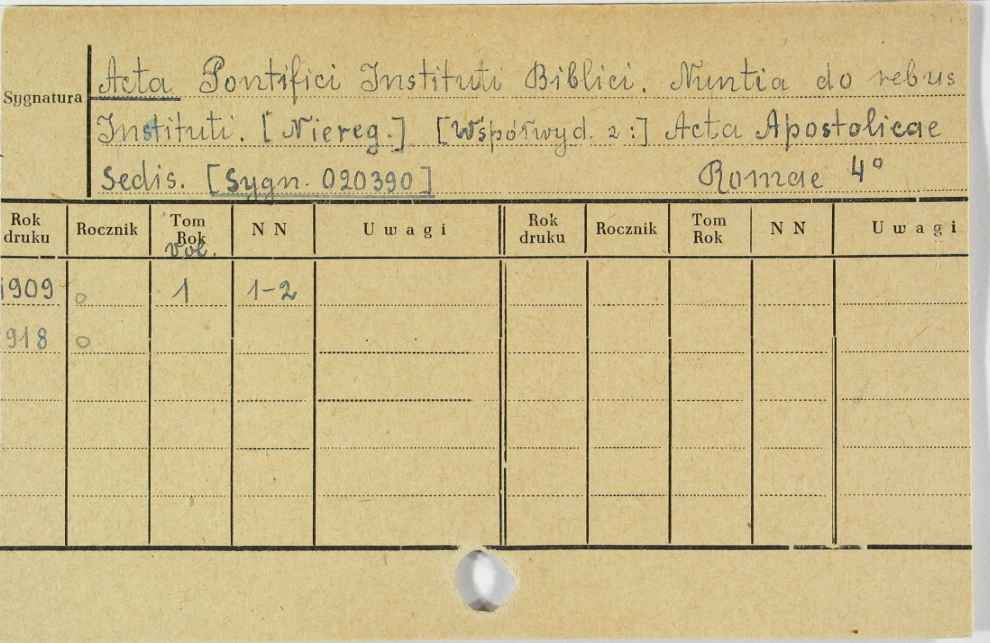 Sygnatura
Acta Pontifici Instituti Biblici. Nuntia do rebus
Instituti. [Niereg.] [Współwyd. z:] Acta Apostolicae
Sedis. [Sygn. 020390] Romae 4°
Rok druku Rocznik Tom Rok Vol. N N Uwagi Rok druku Rocznik Tom Rok N N Uwagi
1909 o 1 1-2
918 o